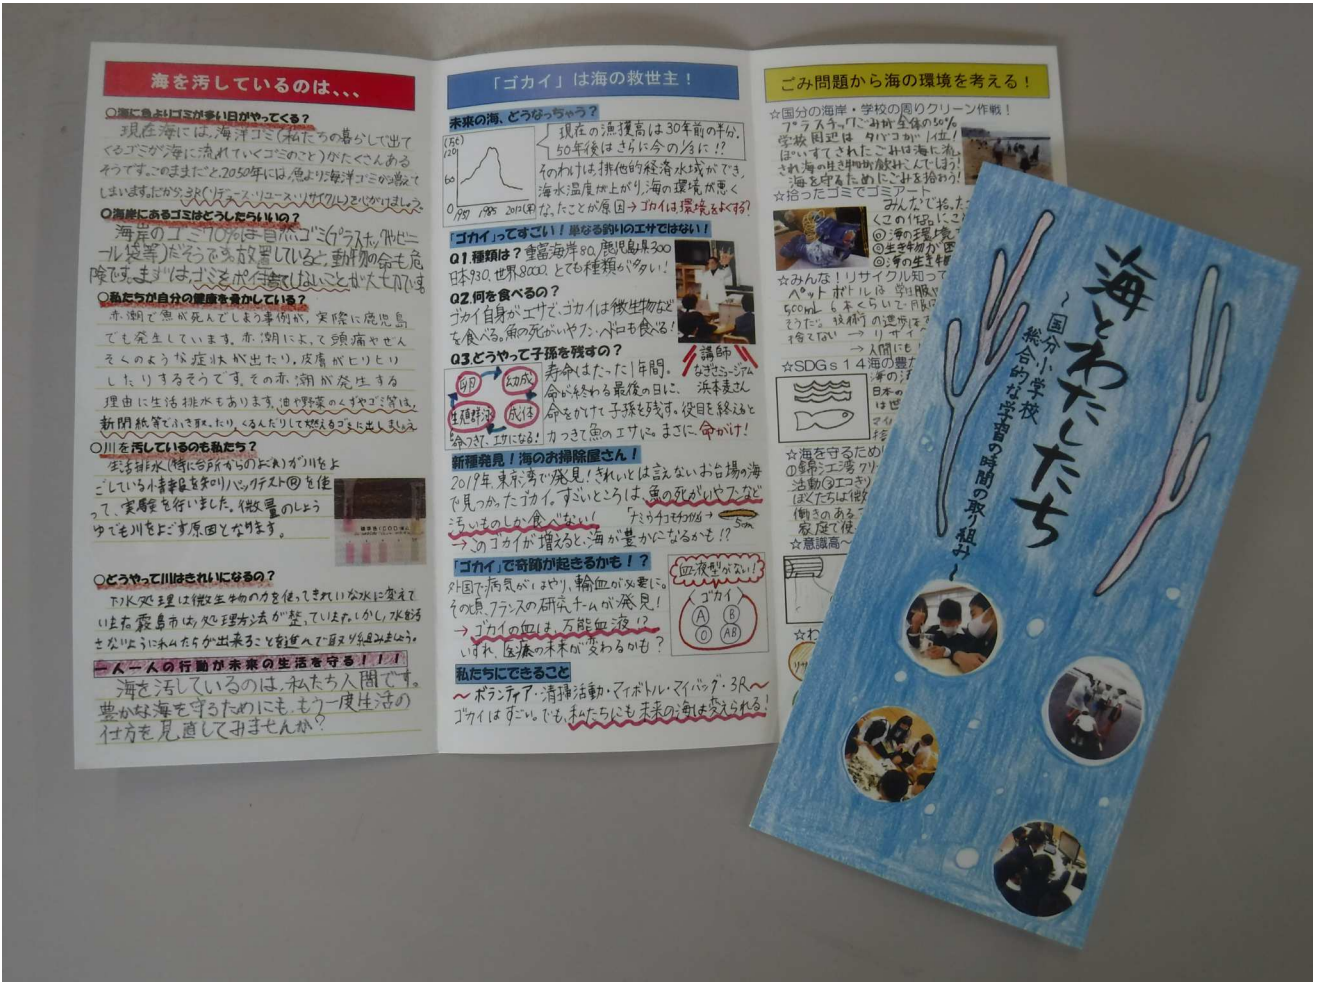 海を汚しているのは、、、
○海に魚よりゴミが多い日がやってくる?
現在海には、海洋ゴミ(私たちの暮らしで出て
くるゴミが海に流れていくゴミのこと)がたくさんある
そうです。このままだと、2050年には、魚より海洋ゴミが増えて
しまいます。だから、3R(リデュース・リユース・リサイクル)を心がけましょう。
○海岸にあるゴミはどうしたらいいの?
海岸のゴミ70%は自然ゴミ(プラスチックやビニ
ール袋等)だそうです。放置していると、動物の命も危
険です。まずは、ゴミをポイ捨てしないことが大七カです
○私たちが自分の健康を脅かしている?
赤潮で魚が死んでしまう事例が、実際に鹿児島
でも発生しています。赤潮によって頭痛やぜん
そくのような症状が出たり、皮膚がヒリヒリ
したりするそうです。その赤潮が発生する
理由に生活排水もあります。油や野菜のくずやゴミ等は、
新聞紙等でふき取ったり、くるんだりして燃えるゴミに出しましょう。
○川を汚しているのも私たち?
生活排水(特に台所からのよごれ)が川をよ
ごしている小青報を知りパックテスト®を使
って、実験を行いました。微量のしょう
ゆでも川をよごす原因となります。
○どうやって川はきれいになるの?
下水処理は微生物の力を使ってきれいな水に変えて
います。霧島市は、処理方法が整っています。しかし、水を汚
さないように私たちが出来ることを進んで取り組みましょう。
一人一人の行動が未来の生活を守る!!!
海を汚しているのは、私たち人間です。
豊かな海を守るためにも、もう一度生活の
仕方を見直してみませんか?
「ゴカイ」は海の救世主!
未来の海、どうなっちゃう?
(万t)
120
60
0
1957 1985 2012(年)
現在の漁獲高は30年前の半分、
50年後はさらに今の1/3に!?
そのわけは排他的経済水域ができ、
海水温度が上がり、海の環境が悪く
なったことが原因→ゴカイは環境をよくする?
「ゴカイ」ってすごい!単なる釣りのエサではない!
Q1.種類は?重富海岸80、鹿児島県300
日本930、世界8000、とても種類が多い!
Q2.何を食べるの?
ゴカイ自身がエサで、ゴカイは微生物など
を食べる。魚の死がいやフン・ヘドロも食べる!
Q3.どうやって子孫を残すの?
卵
幼成
生殖群泳
成体
命つきて、エサになる!
寿命はたった1年間。
命が終わる最後の日に、
命をかけて子孫を残す。役目を終えると
力つきて魚のエサに。まさに、命がけ!
講師
なぎさミュージアム
浜本麦さん
新種発見!海のお掃除屋さん!
2019年、東京湾で発見!きれいとは言えないお台場の海
で見つかったゴカイ。すごいところは、魚の死がいやフンなど
汚いものしか食べない!
5cm
→このゴカイが増えると、海が豊かになるかも!?
「ゴカイ」で奇跡が起きるかも!?
外国で病気がはやり、輸血が必要に。
その頃、フランスの研究チームが発見!
→ゴカイの血は、万能血液!?
いずれ、医療の未来が変わるかも?
血液型がない!
ゴカイ
A B
O AB
私たちにできること
~ボランティア・清掃活動・マイボトル・マイバッグ・3R~
ゴカイはすごい。でも、私たちにも未来の海は変えられる!
ごみ問題から海の環境を考える!
☆国分の海岸・学校の周りクリーン作戦!
プラスチックごみが全体の50%
学校周辺は、タバコが1位!
ぽいすてされたごみは海に流
され海の生き物が飲みこんでしまう!
海を守るためにごみを拾おう!
☆拾ったゴミでゴミアート
みんなで拾った
くこの作品にこ
◎海の環境
◎生き物が困
◎海の生き物
☆みんな!リサイクル知って
ペットボトルは学生服や
500mL 6本くらいで
そうだ。技術の進歩は
捨てない → リサイ
→ 人間にも
☆SDGs14海の豊か
海の
日本の
は世
☆海を守るため
①錦江湾クリ
活動③エコキ
ぼくたちは微
働きのある
家庭で使
☆意識高~
☆わ
海とわたしたち
~国分小学校
総合的な学習の時間の取り組み~